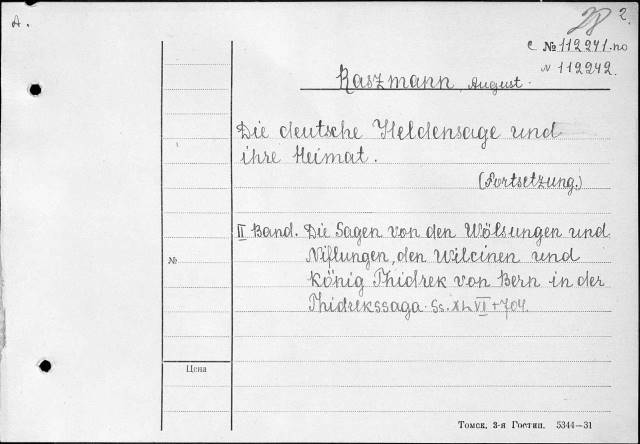 A.
28 2.
с № 112241. по
№ 112242.
Raszmann, August.
Die deutsche Heldensage und
ihre Heimat.
(Fortsetzung.)
II Band. Die Sagen von den Wölsungen und
Niflungen, den Wilcinen und
König Thidrek von Bern in der
Thidrekssaga. Ss. XLVI + 704.
№
Цена
Томск, 3-я Гостип. 5344—31